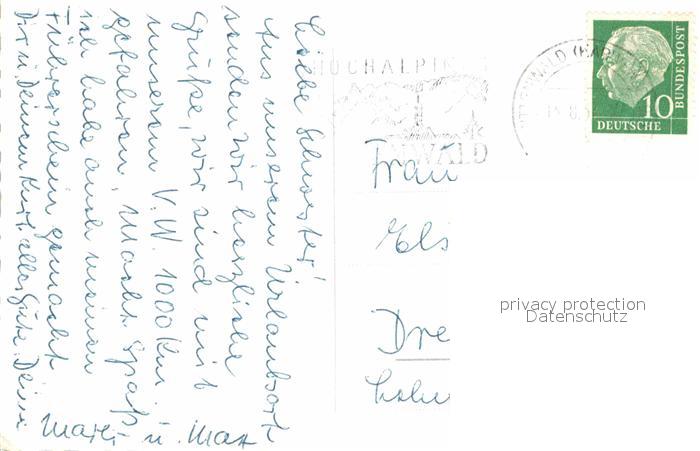 Liebe Schwester!
Aus unserem Urlaubsort
senden wir herzliche
Grüße, wir sind mit
unserem V.W. 1000 Km
gefahren, Macht Spaß
ich habe auch meinen
Führerschein gemacht
Dir u. Deinem Kurt alles Gute. Deine
u. Max
HOCHALPIN
NWALD
10
DEUTSCHE
BUNDESPOST
Frau
Els
Dre
privacy protection
Datenschutz